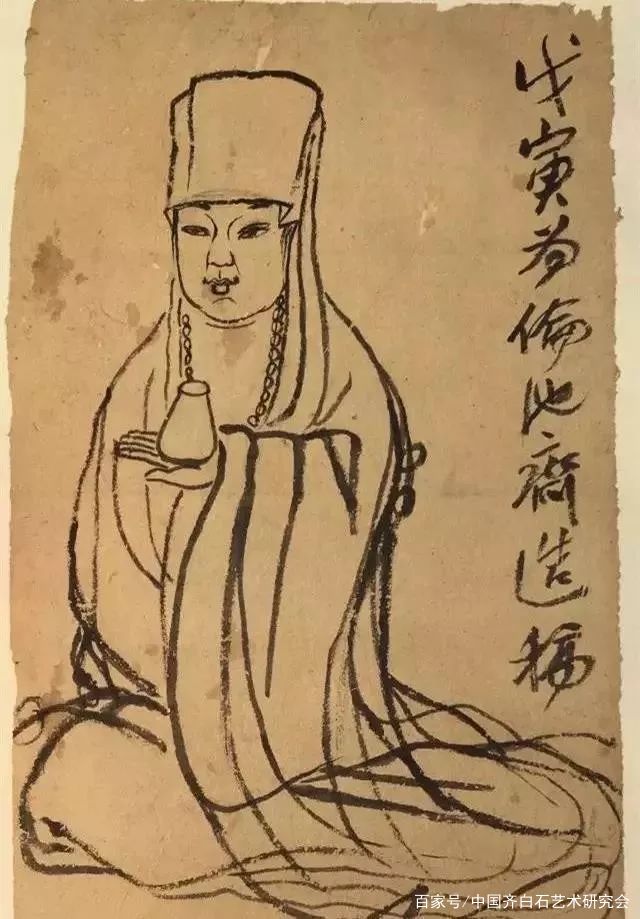 戊寅为伦池斋造稿
百家号/中国齐白石艺术研究会